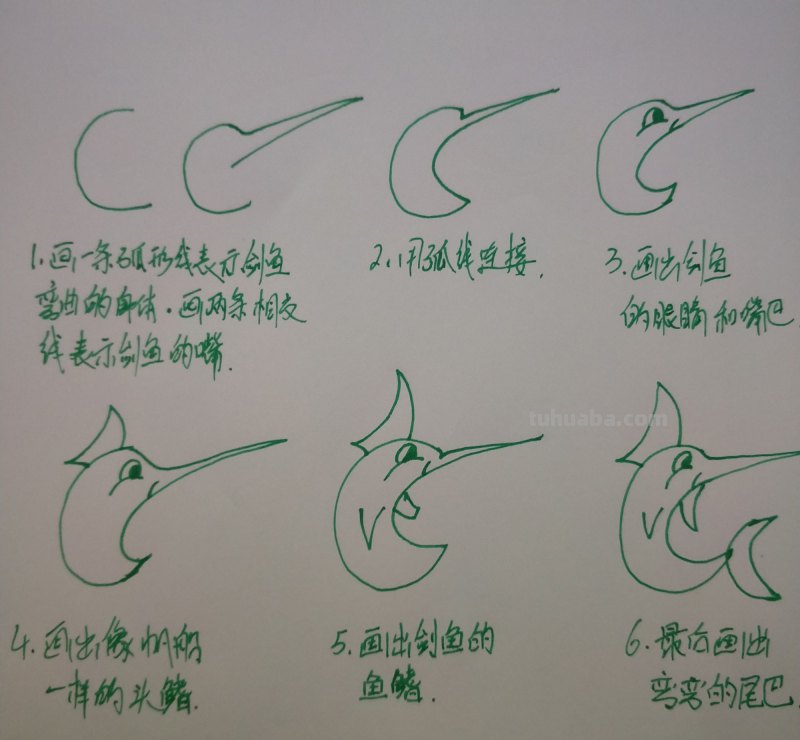 1.画一条弧形线表示剑鱼
弯曲的身体.画两条相交
线表示剑鱼的嘴.
2.用弧线连接.
3.画出剑鱼
的眼睛和嘴巴
tuhuaba.com
4.画出像帆船
一样的头鳍.
5.画出剑鱼的
鱼鳍.
6.最后画出
弯弯的尾巴.